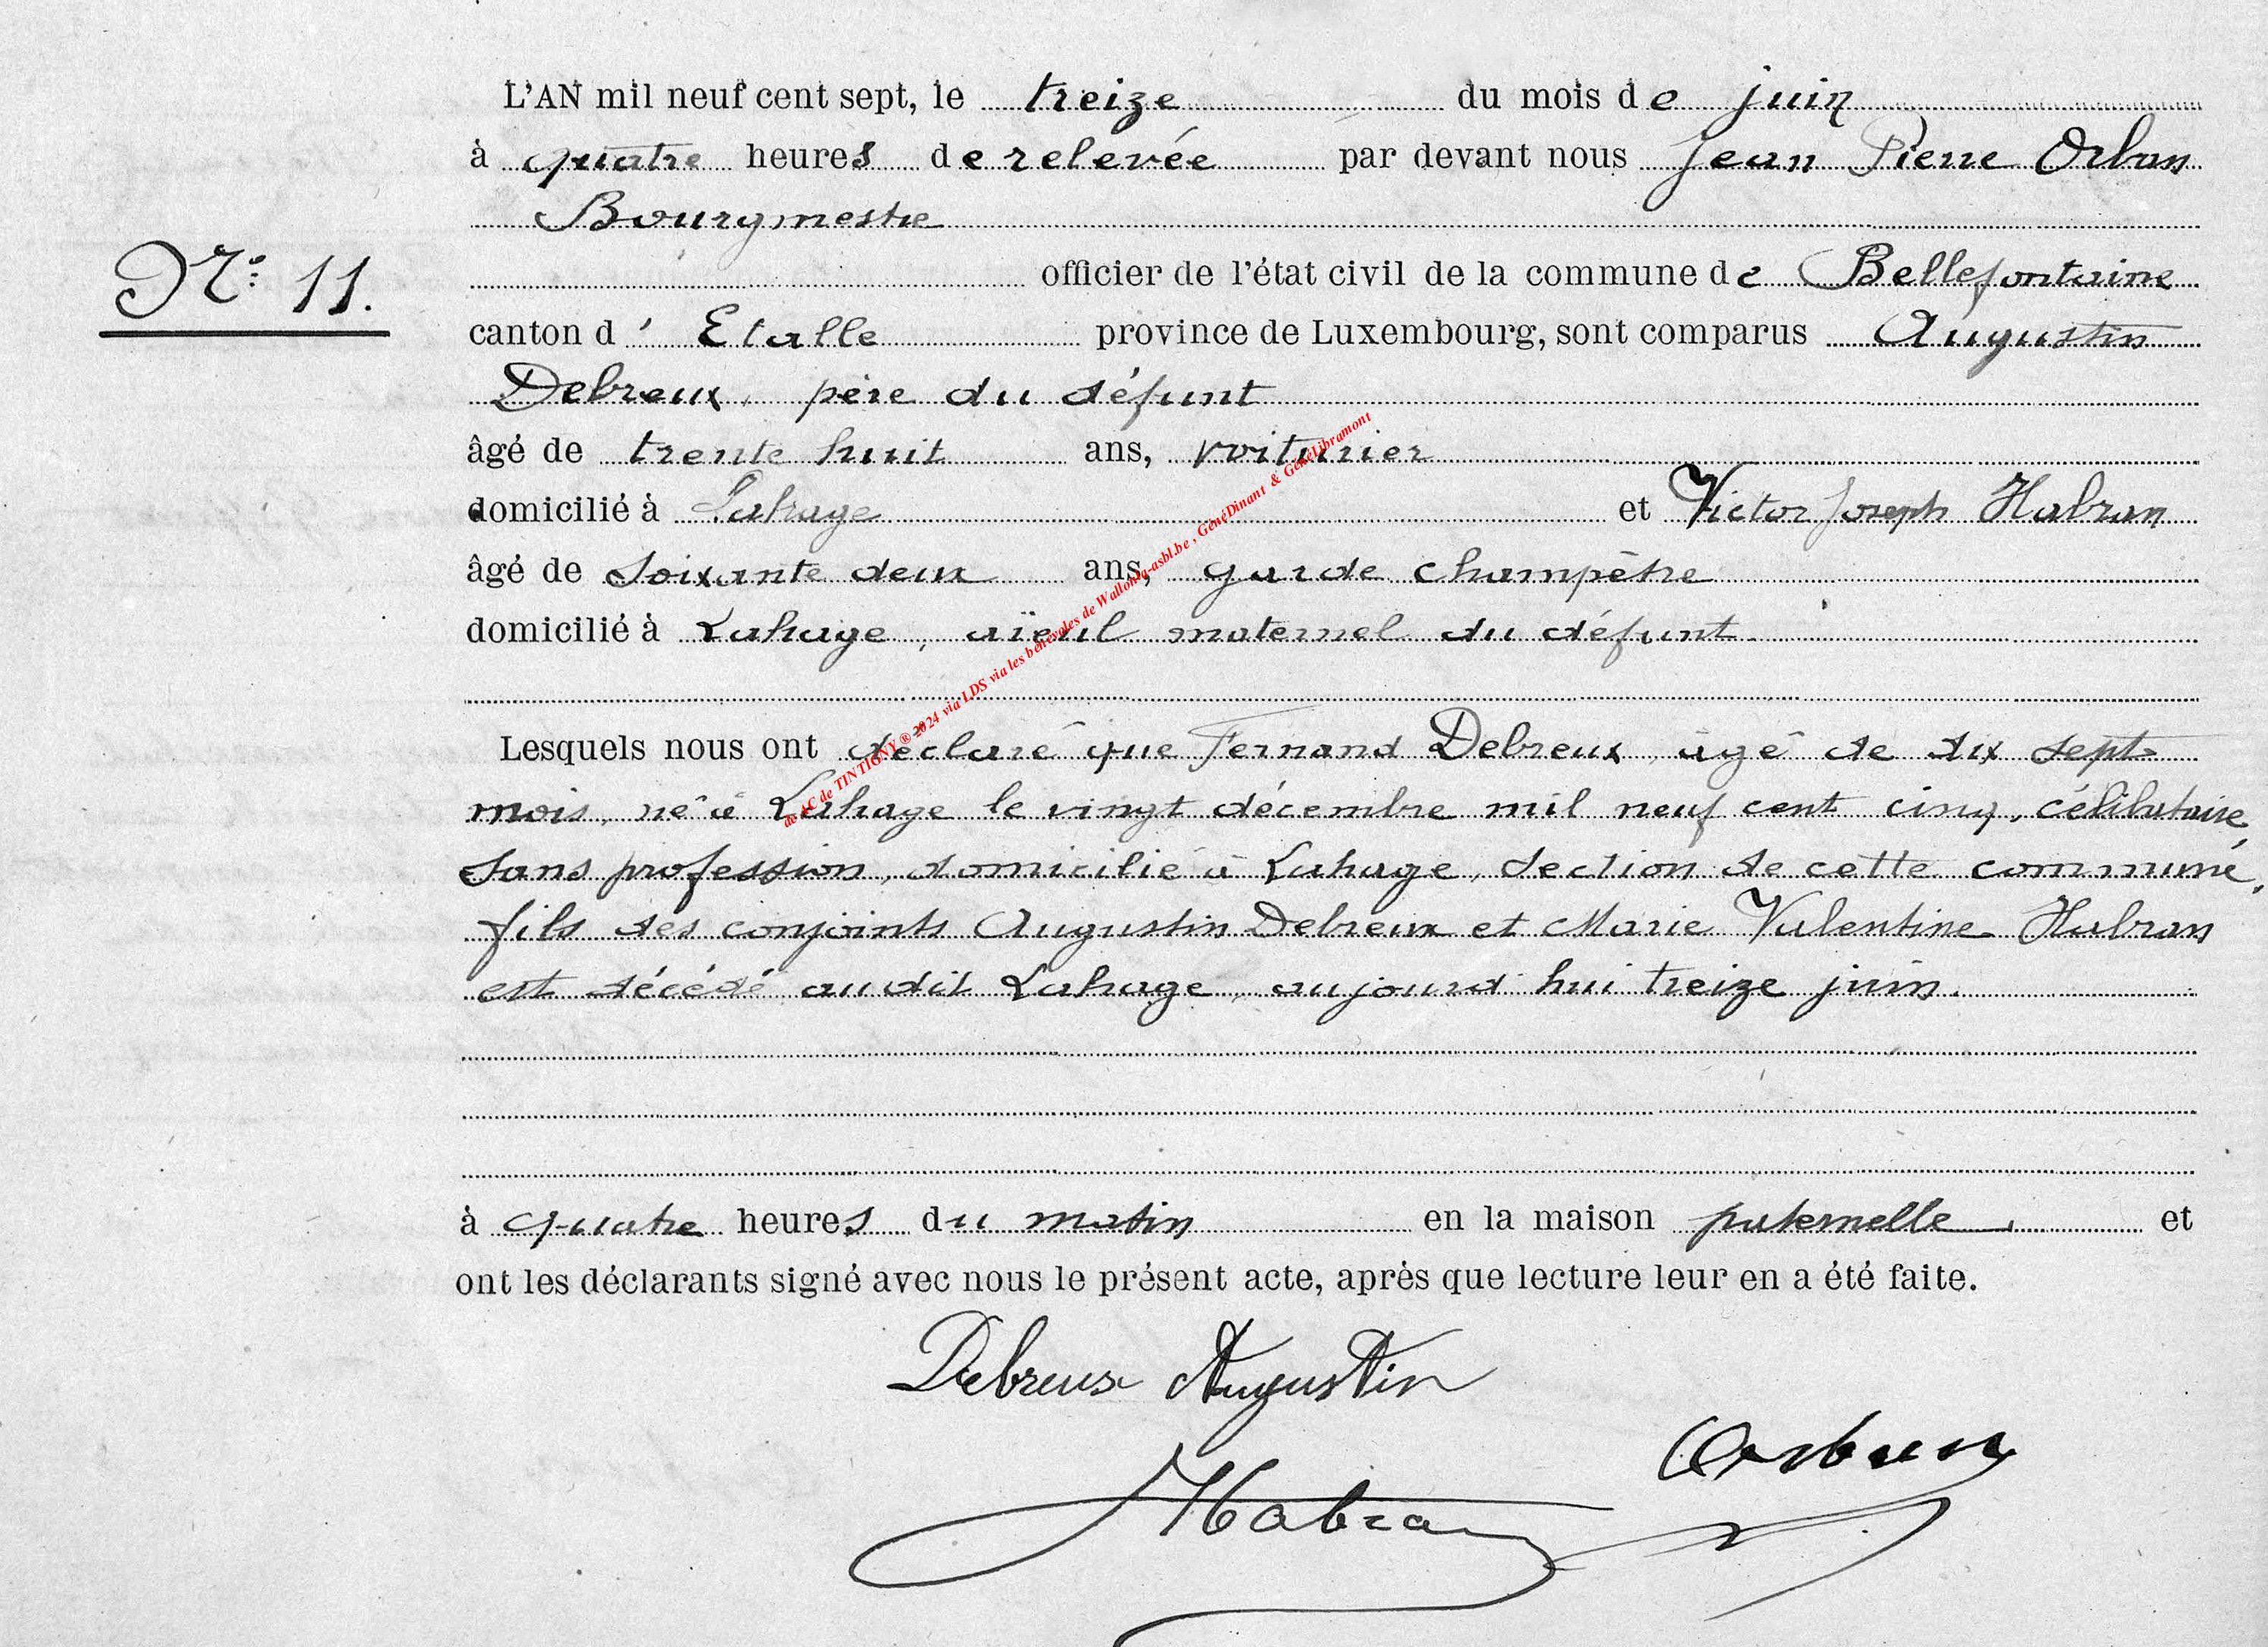 L'AN mil neuf cent sept, le treize du mois de juin
à quatre heures de relevée par devant nous Jean Pierre Orban
Bourgmestre
N° 11.
officier de l'état civil de la commune de Bellefontaine
canton d'Etalle province de Luxembourg, sont comparus Augustin
Debreux, père du défunt
âgé de trente huit ans, voiturier
domicilié à Lahage et Victor Joseph Habran
âgé de soixante deux ans, garde champêtre
domicilié à Lahage, aïeul maternel du défunt
Lesquels nous ont déclaré que Fernand Debreux, âgé de dix sept
mois, né à Lahage le vingt décembre mil neuf cent cinq, célibataire,
sans profession, domicilié à Lahage, section de cette commune,
fils des conjoints Augustin Debreux et Marie Valentine Habran
est décédé audit Lahage, aujourd'hui treize juin.
à quatre heures du matin en la maison paternelle, et
ont les déclarants signé avec nous le présent acte, après que lecture leur en a été faite.
Debreux Augustin
Orban
Habran
de AC de TINTIGNY ® 2024 via LDS via les bénévoles de Wallonia-asbl.be , GénéDinant & GénéLibramont